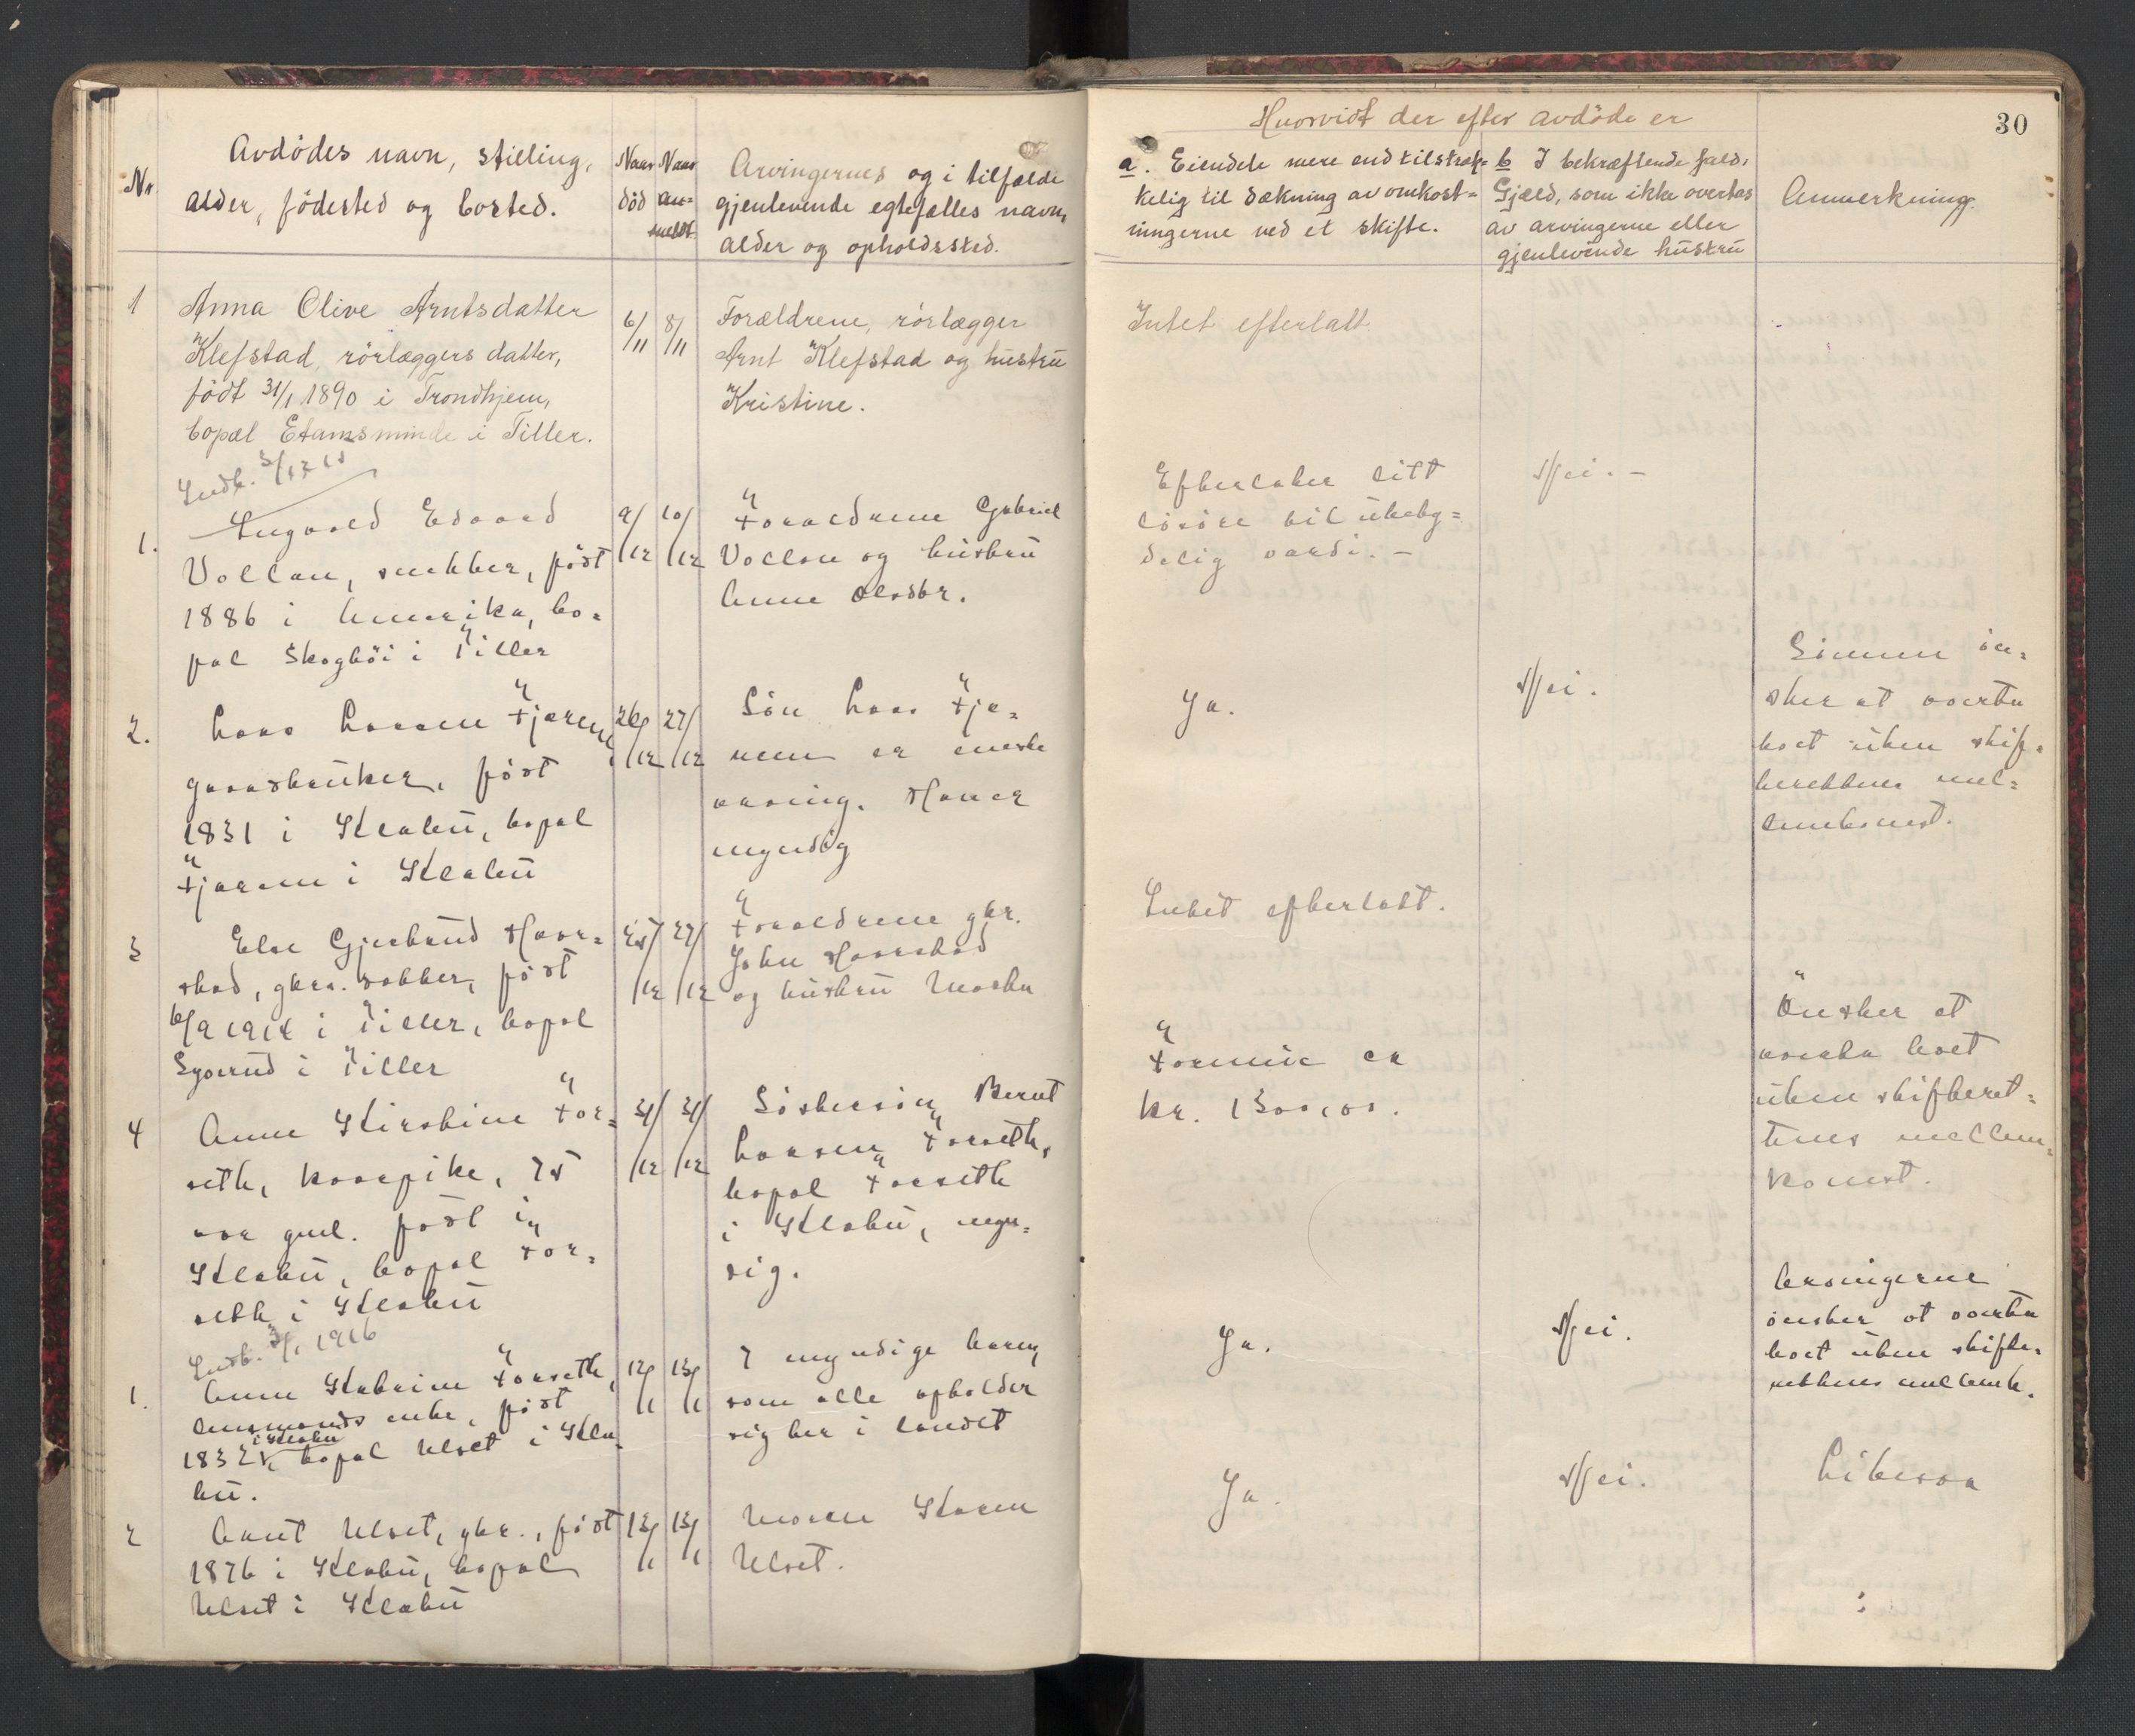 30
Nr.
Avdødes navn, stilling,
alder, fødested og bosted.
Naar død
Naar anmeldt
Arvingernes og i tilfælde
gjenlevende egtefælles navn,
alder og opholdssted.
Hvorvidt der efter avdøde er
a. Eiendele mere end tilstræk=
kelig til dækning av omkost=
ningerne ved et skifte.
b I bekræftende fald,
Gjæld, som ikke overtas
av arvingerne eller
gjenlevende hustru
Anmerkning.
1
Anna Olive Arntsdatter
Klefstad, rørlæggers datter,
født 31/1 1890 i Trondhjem,
bopæl Etamsminde i Tiller.
6/11
8/11
Forældrene, rørlægger
Arnt Klefstad og hustru
Kristine.
Intet efterlatt.
Indb.
1.
Ingvald Edvard
Vollan, snekker, født
1886 i Amerika, bo=
pæl Skoghöi i Tiller
9/12
10/12
Forældrene Gabriel
Vollan og hustru
Anne Olsdtr.
Efterlater litt
løsöre til ubety=
delig værdi. —
Nei. —
2.
Lars Larsen Fjæren
gaardbruker, født
1831 i Klæbu, bopæl
Fjæren i Klæbu
26/12
27/12
Sön Lars Fjæ=
rem er eneste
arving. Han er
myndig
Ja.
Nei.
Sönnen ön=
sker at overta
boet uten skif=
terettens mel=
lemkomst.
3
Else Gjertrud Haar=
stad, gbrs. datter, født
6/9 1914 i Tiller, bopæl
i Tiller
25/12
27/12
Forældrene gbr.
John Haarstad
og hustru Marta
Intet efterlatt.
4
Anne Kirstine For=
seth, kaarpike, 75
aar gml. født i
Klæbu, bopæl For=
seth i Klæbu
31/12
31/12
Söstersön Bernt
Larsen Forseth,
bopæl Forseth
i Klæbu, myn=
dig.
Formue ca
kr. 1300,00.
Önsker at
overta boet
uten skifteret=
tens mellem=
komst.
Indb. 3/1 1916
1.
Anne Katrine Forseth,
lensmands enke, født
1832 i Klæbu bopæl Ulset i Klæ=
bu.
12/1
13/1
7 myndige barn,
som alle opholder
sig her i landet
Ja.
Nei.
Arvingerne
önsker at overta
boet uten skifte=
rettens mellemk.
2
Arnt Ulset, gbr., født
1876 i Klæbu, bopæl
Ulset i Klæbu
13/1
13/1
Moren Karen
Ulset.
Ja.
Nei.
Likesaa